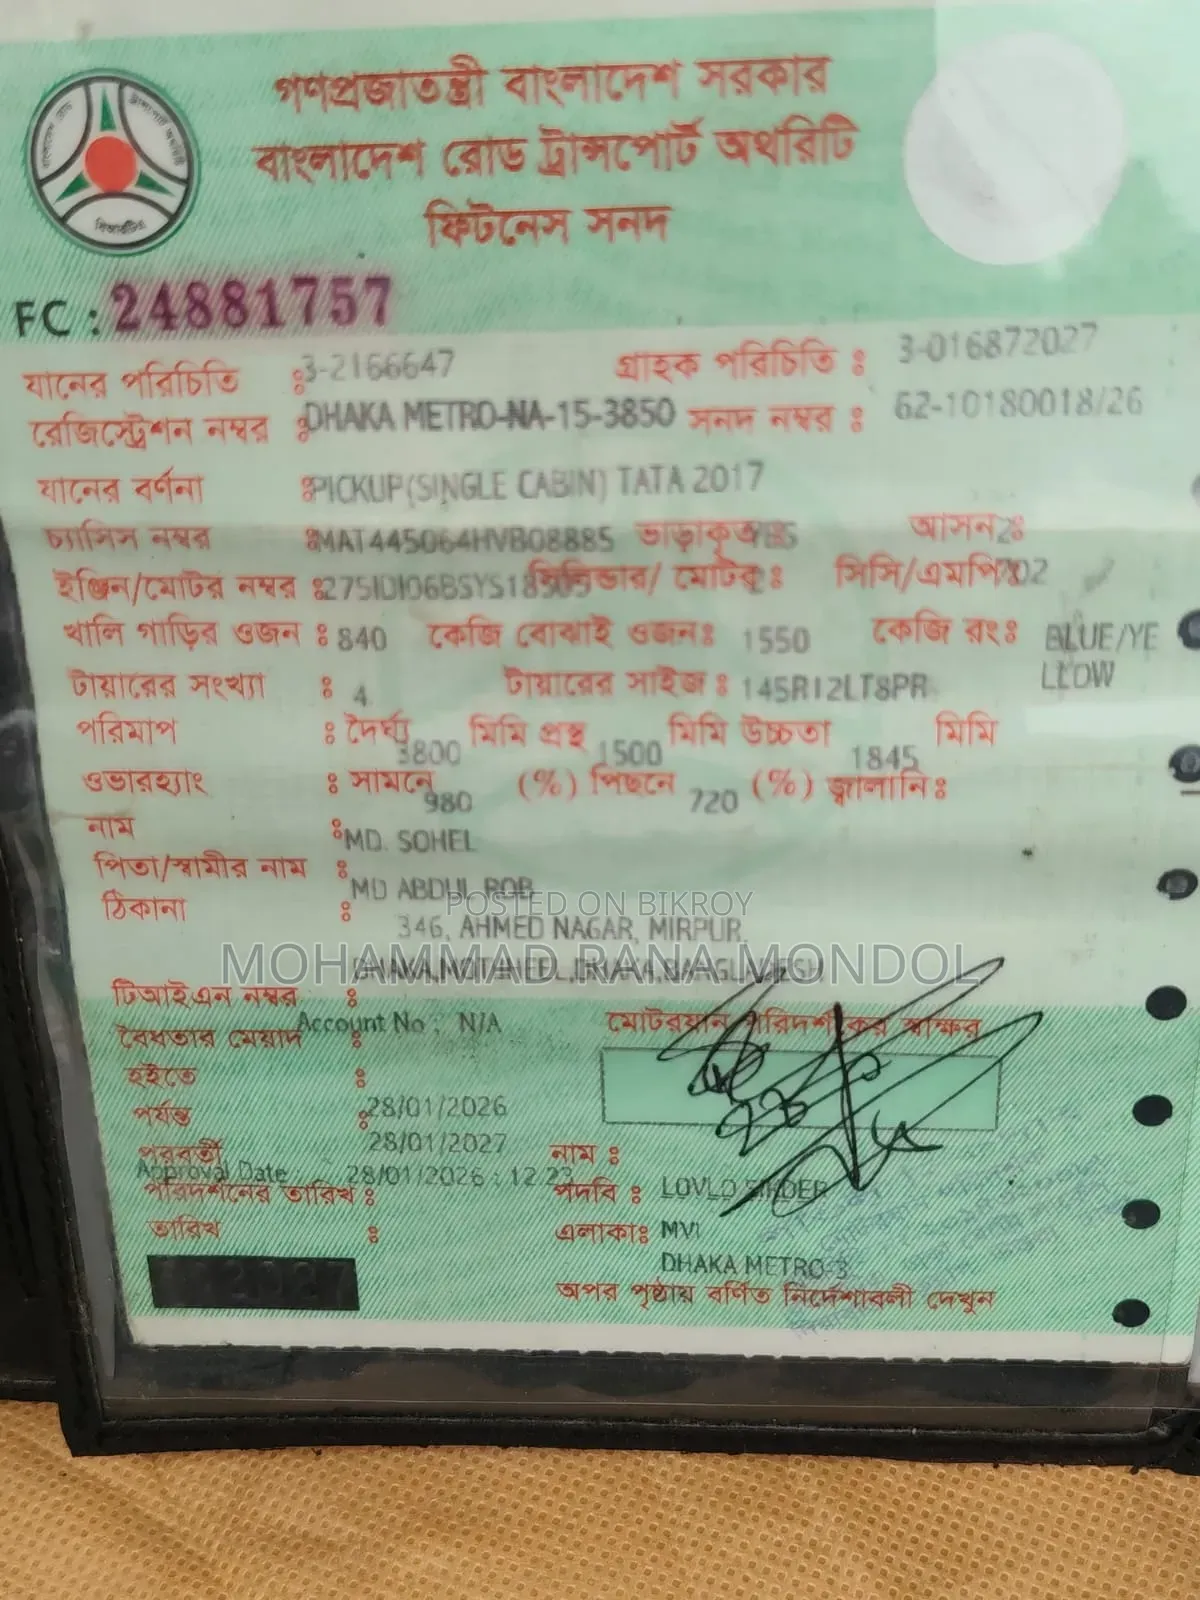 গণপ্রজাতন্ত্রী বাংলাদেশ সরকার
বাংলাদেশ রোড ট্রান্সপোর্ট অথরিটি
ফিটনেস সনদ
FC : 24881757
যানের পরিচিতি : 3-2166647 গ্রাহক পরিচিতি : 3-016872027
রেজিস্ট্রেশন নম্বর : DHAKA METRO-NA-15-3850 সনদ নম্বর : 62-10180018/26
যানের বর্ণনা : PICKUP(SINGLE CABIN) TATA 2017
চ্যাসিস নম্বর : MAT445064HVB08885 ভাড়াকৃত আসন : 2
ইঞ্জিন/মোটর নম্বর : সিলিন্ডার/ মোটর : 2 সিসি/এমপি 702
খালি গাড়ির ওজন : 840 কেজি বোঝাই ওজন : 1550 কেজি রং : BLUE/YE
LLOW
টায়ারের সংখ্যা : 4 টায়ারের সাইজ : 145R12LT8PR
পরিমাপ : দৈর্ঘ্য 3800 মিমি প্রস্থ 1500 মিমি উচ্চতা 1845 মিমি
ওভারহ্যাং : সামনে 980 (%) পিছনে 720 (%) জ্বালানি :
নাম : MD. SOHEL
পিতা/স্বামীর নাম : MD ABDUL ROB
POSTED ON BIKROY
ঠিকানা : 346, AHMED NAGAR, MIRPUR,
MOHAMMAD RANA MONDOL
DHAKA,MOTIJHEEL,DHAKA,BANGLADESH
টিআইএন নম্বর :
Account No : N/A
বৈধতার মেয়াদ : মোটরযান পরিদর্শকের স্বাক্ষর
হইতে : 28/01/2026
পর্যন্ত : 28/01/2027
পরবর্তী নাম :
Approval Date : 28/01/2026 : 12.23
পরিদর্শনের তারিখ : পদবি : LOVLO SIKDER
তারিখ : এলাকা : MVI
DHAKA METRO-3
অপর পৃষ্ঠায় বর্ণিত নির্দেশাবলী দেখুন